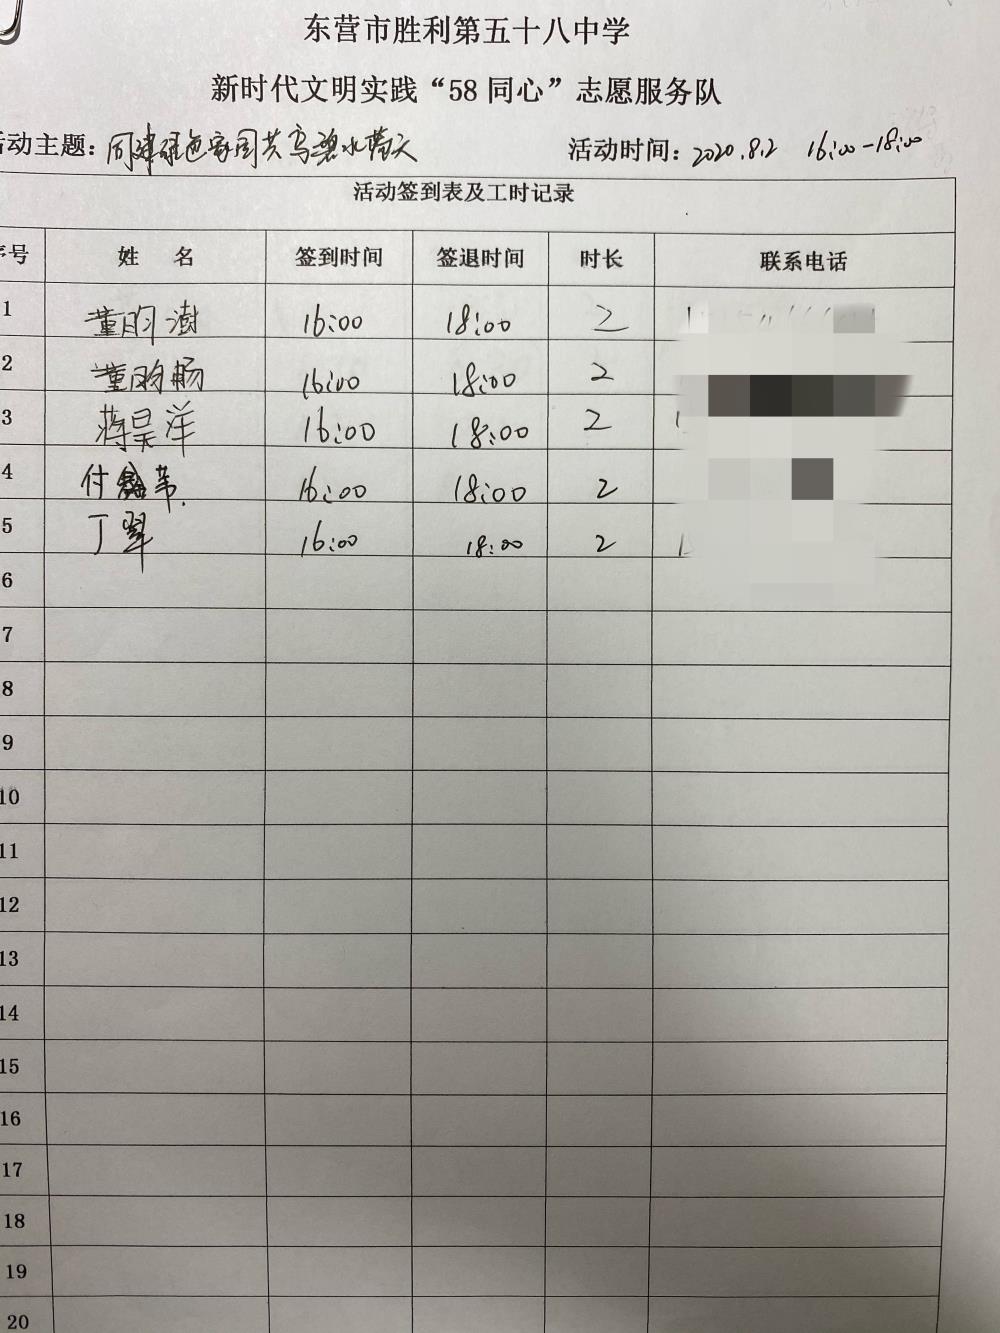 东营市胜利第五十八中学
新时代文明实践“58 同心”志愿服务队
活动主题：同建绿色家园共享碧水蓝天 活动时间：2020.8.2 16:00-18:00
活动签到表及工时记录
序号 姓 名 签到时间 签退时间 时长 联系电话
1 董 澍 16:00 18:00 2
2 董 16:00 18:00 2
3 蒋昊洋 16:00 18:00 2
4 付 16:00 18:00 2
5 丁翠 16:00 18:00 2
6
7
8
9
10
11
12
13
14
15
16
17
18
19
20